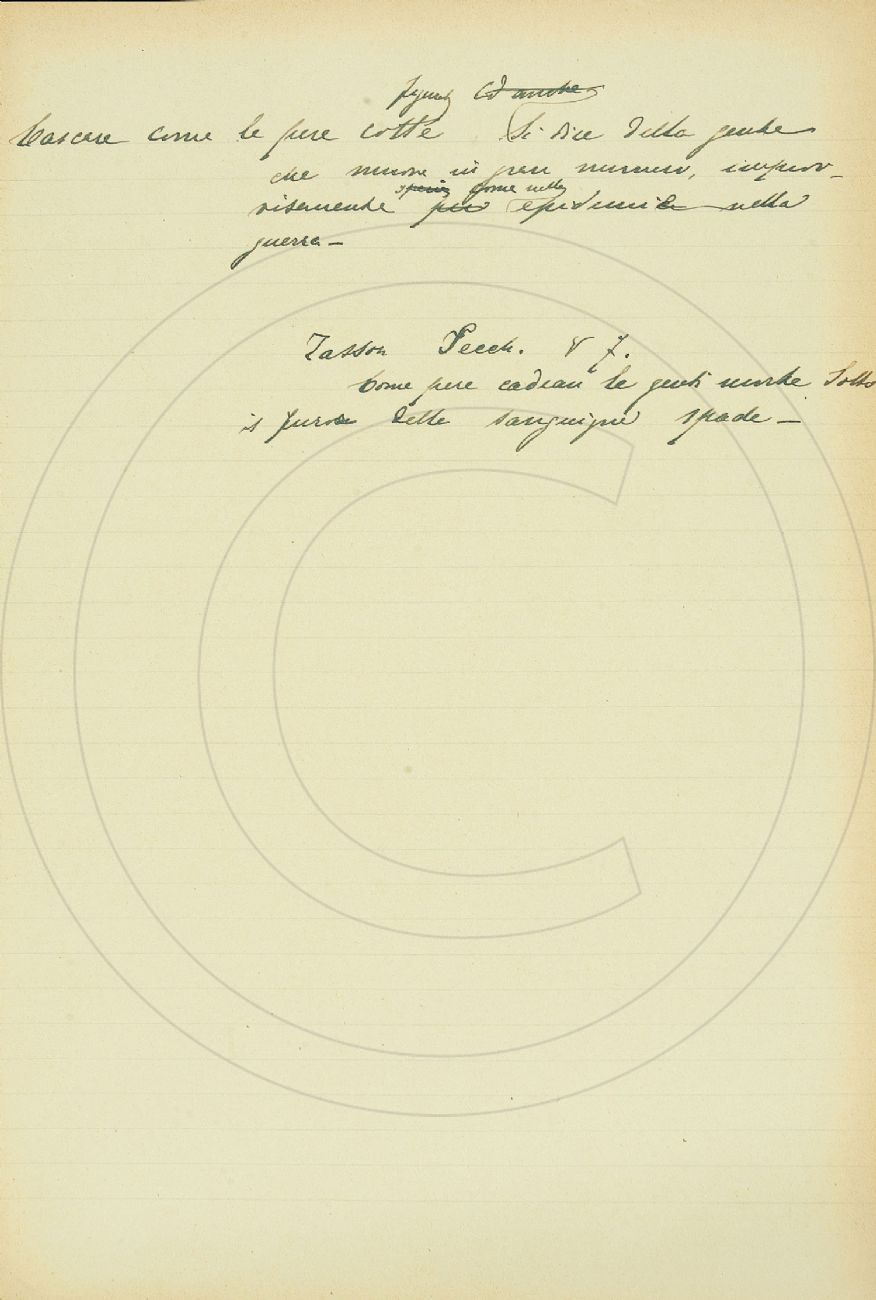 Cascare come le pere cotte Si dice della gente
che muore in gran numero, improv-
visamente per epidemia nella
come nelle
guerra —
Tasson Secch. V 7.
Come pere cadean le genti morte Sotto
il furor delle sanguigne spade —